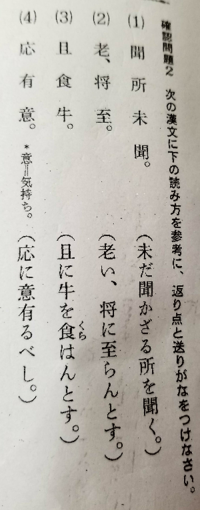 確認問題2　次の漢文に下の読み方を参考に、返り点と送りがなをつけなさい。
(1) 聞所未聞。（未だ聞かざる所を聞く。）
(2) 老、将至。（老い、将に至らんとす。）
(3) 且食牛。（且に牛を食はんとす。）
くら
(4) 応有意。 *意＝気持ち。（応に意有るべし。）